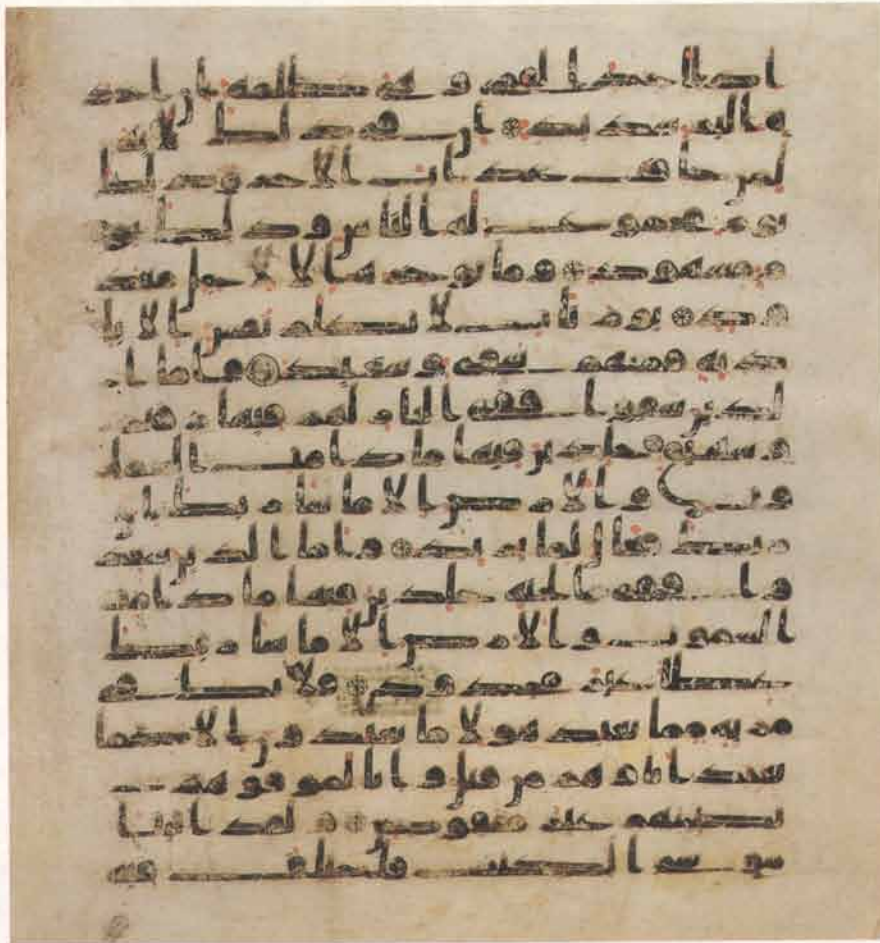 اذا اخذ القرى وهى ظلمة ان اخذه
ا ليم شديد ان فى ذلك لاية
لمن خاف عذاب الاخرة ذلك
يوم مجموع له الناس وذلك يو
م مشهود وما نوخره الا لاجل معد
ود يوم يات لا تكلم نفس الا با
ذنه فمنهم شقى وسعيد فاما ا
لذين شقوا ففى النار لهم فيها زفير
وشهيق خلدين فيها ما دامت السمو
ت والارض الا ما شا ربك ان
ربك فعال لما يريد واما الذين سعد
وا ففى الجنة خلدين فيها ما دامت
السموت والارض الا ما شا ربك
عطا غير مجذوذ فلا تك فى
مرية مما يعبد هولا ما يعبدون الا كما
يعبد اباوهم من قبل وانا لموفوهم
نصيبهم غير منقوص ولقد اتينا
موسى الكتب فاختلف فيه